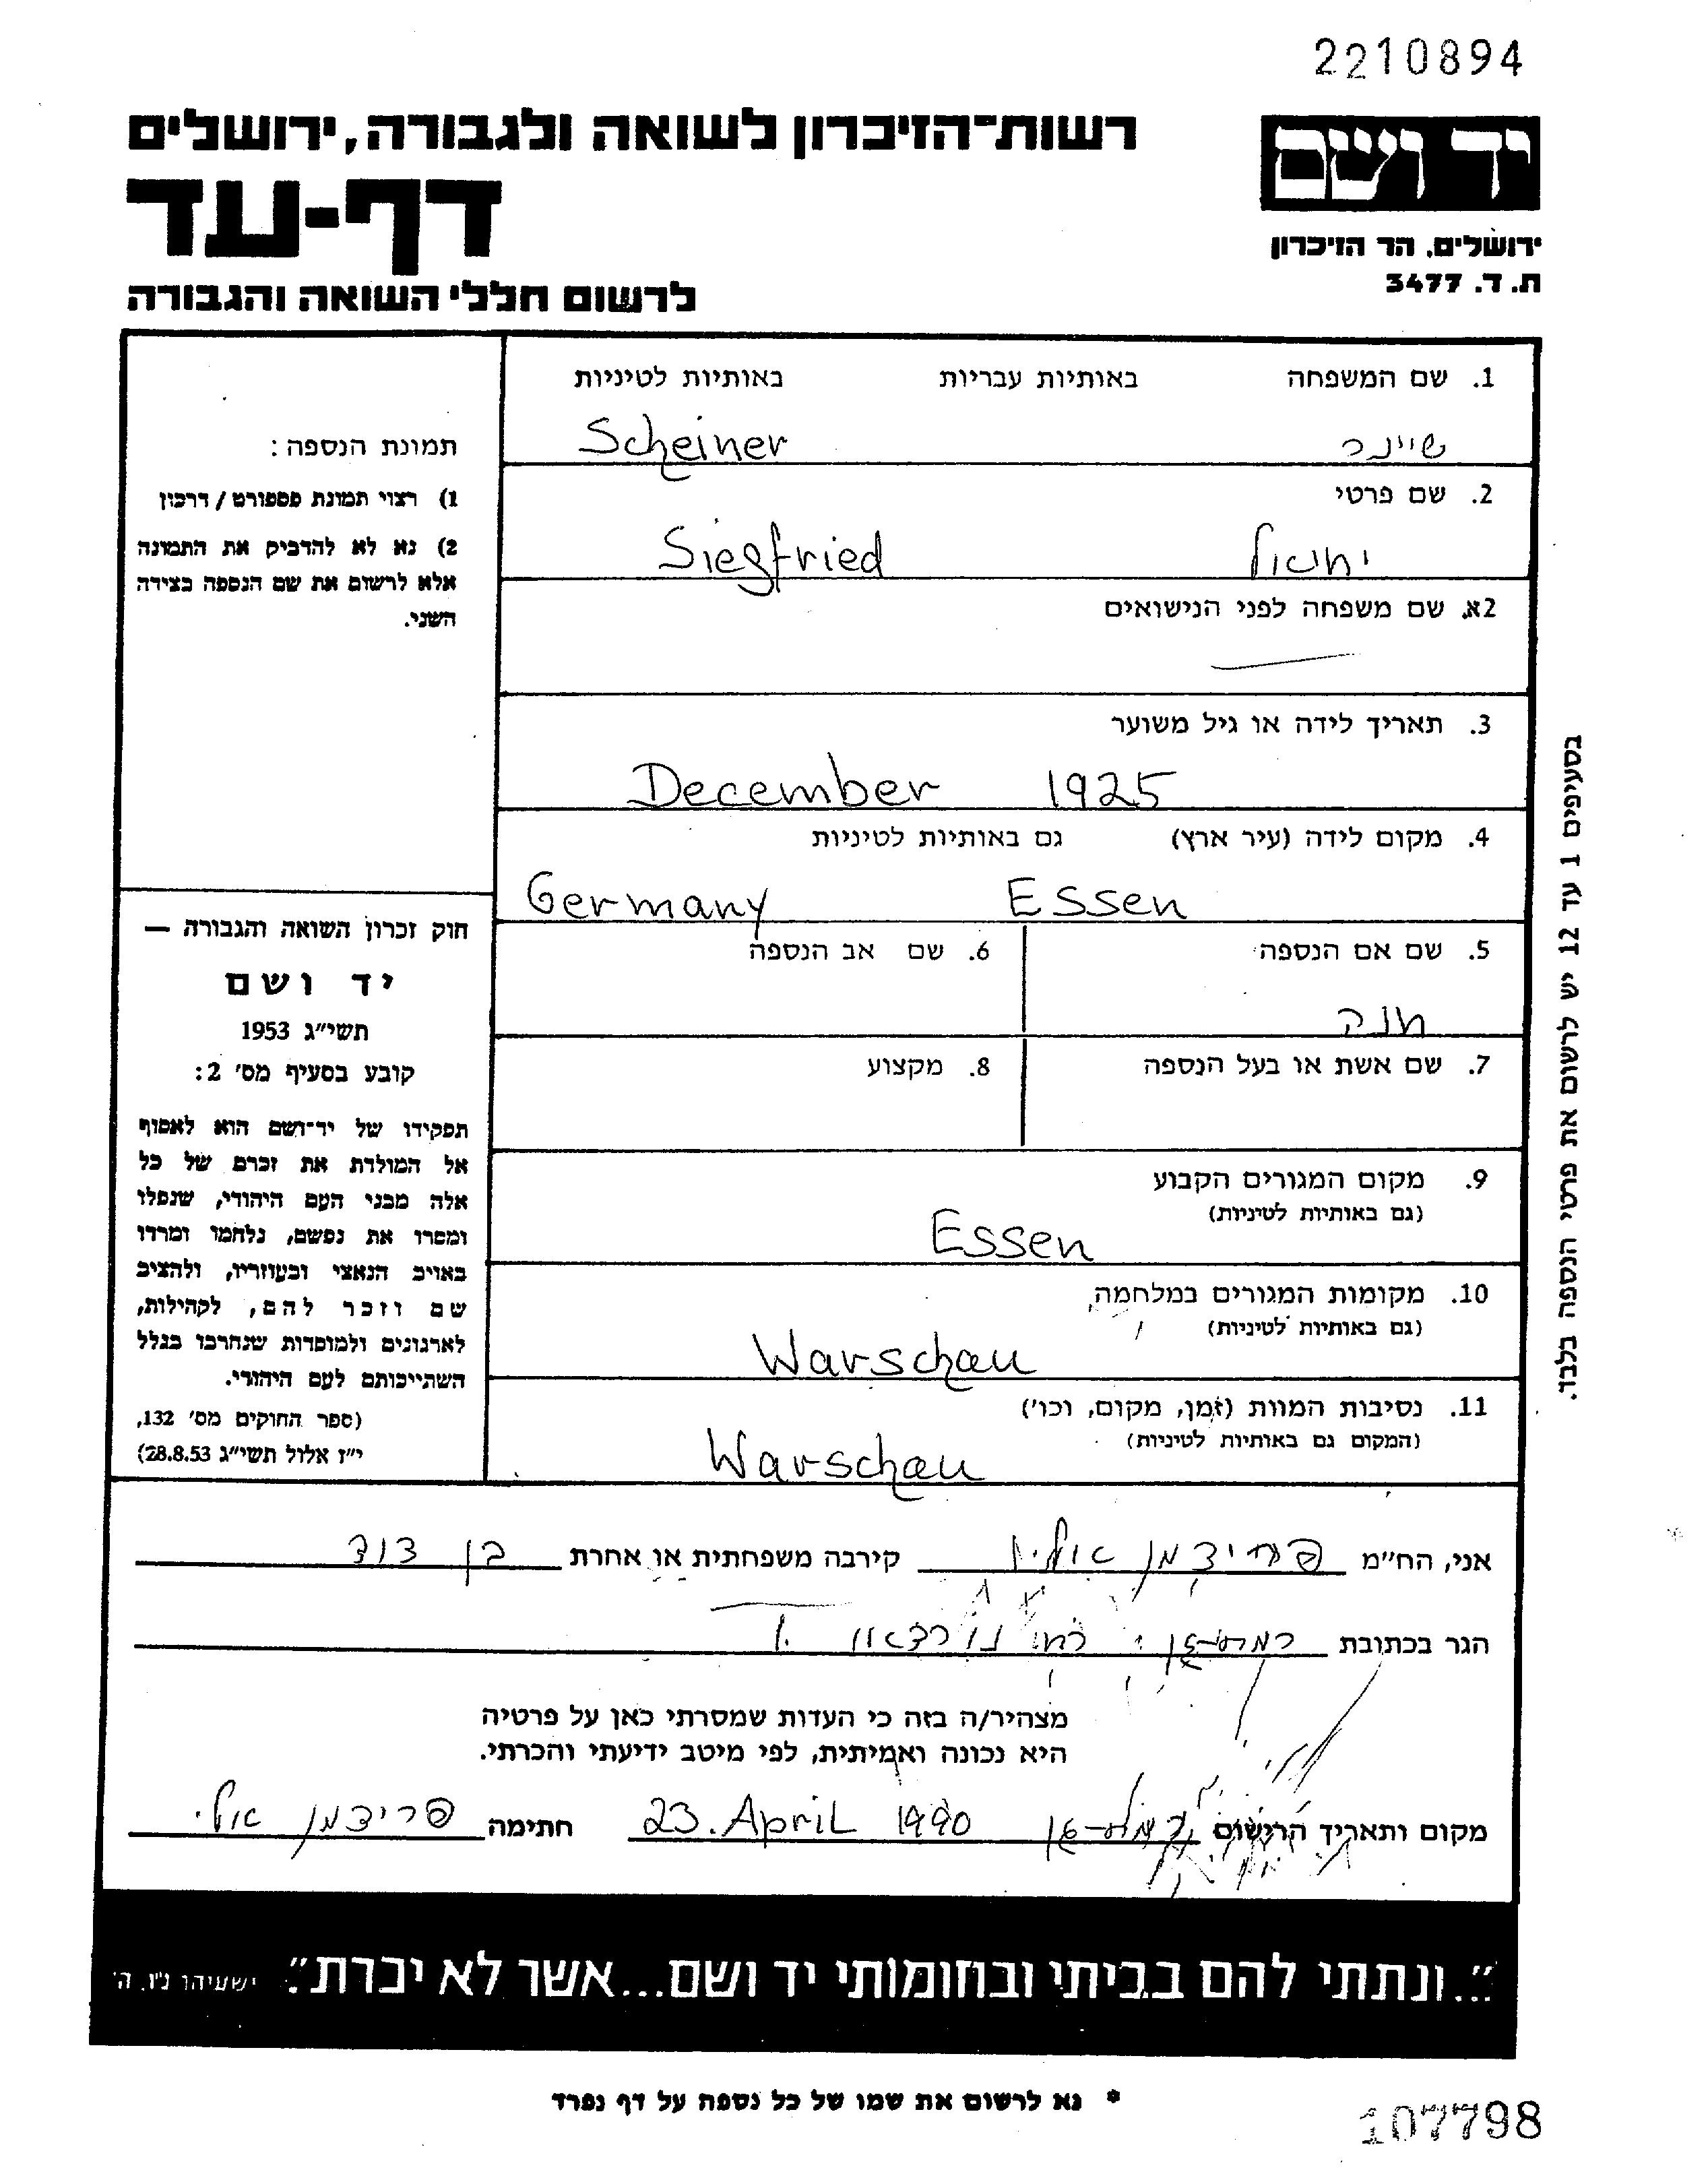 2210894
יד ושם
ירושלים, הר הזיכרון
ת. ד. 3477
רשות-הזיכרון לשואה ולגבורה, ירושלים
דף-עד
לרשום חללי השואה והגבורה
1. שם המשפחה באותיות עבריות באותיות לטיניות
שיינר Scheiner
2. שם פרטי
יחיאל Siegfried
2א. שם משפחה לפני הנישואים
3. תאריך לידה או גיל משוער
December 1925
4. מקום לידה (עיר ארץ) גם באותיות לטיניות
Germany Essen
5. שם אם הנספה 6. שם אב הנספה
חנה
7. שם אשת או בעל הנספה 8. מקצוע
9. מקום המגורים הקבוע
(גם באותיות לטיניות)
Essen
10. מקומות המגורים במלחמה
(גם באותיות לטיניות)
Warschau
11. נסיבות המוות (זמן, מקום, וכו')
(המקום גם באותיות לטיניות)
Warschau
תמונת הנספה:
1) רצוי תמונת פספורט / דרכון
2) נא לא להדביק את התמונה
אלא לרשום את שם הנספה בצידה
השני.
חוק זכרון השואה והגבורה —
יד ושם
תשי"ג 1953
קובע בסעיף מס' 2:
תפקידו של יד-ושם הוא לאסוף
אל המולדת את זכרם של כל
אלה מבני העם היהודי, שנפלו
ומסרו את נפשם, נלחמו ומרדו
באויב הנאצי ובעוזריו, ולהציב
שם וזכר להם, לקהילות,
לארגונים ולמוסדות שנחרבו בגלל
השתייכותם לעם היהודי.
(ספר החוקים מס' 132,
י"ז אלול תשי"ג 28.8.53)
בסעיפים 1 עד 12 יש לרשום את פרטי הנספה בלבד.
אני, הח"מ פרידמן קירבה משפחתית או אחרת בן דוד
הגר בכתובת רמת-גן נורדאו
מצהיר/ה בזה כי העדות שמסרתי כאן על פרטיה
היא נכונה ואמיתית, לפי מיטב ידיעתי והכרתי.
מקום ותאריך הרישום רמת-גן 23. April 1990 חתימה פרידמן אלי
"...ונתתי להם בביתי ובחומותי יד ושם...אשר לא יכרת". ישעיהו נ"ו, ה'
* נא לרשום את שמו של כל נספה על דף נפרד
107798